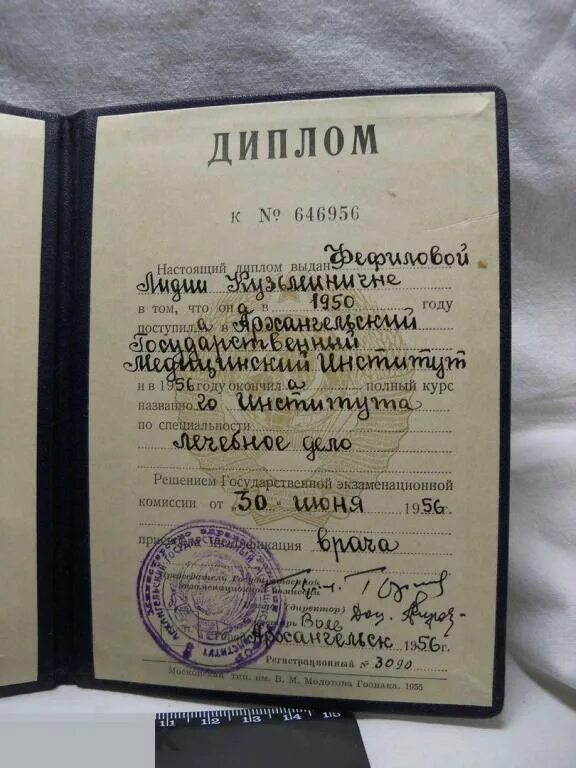 ДИПЛОМ
К № 646956
Настоящий диплом выдан Фефиловой
Лидии Кузьминичне
в том, что она в 1950 году
поступила в Архангельский
Государственный
Медицинский Институт
и в 1956 году окончила полный курс
названного Института
по специальности
лечебное дело
Решением Государственной экзаменационной
комиссии от 30 июня 1956 г.
присвоена квалификация врача
Председатель Государственной
экзаменационной комиссии
(директор)
Город Архангельск 1956 г.
Регистрационный № 3090
Московская тип. им. В. М. Молотова Гознака. 1955
11 12 13 14 15